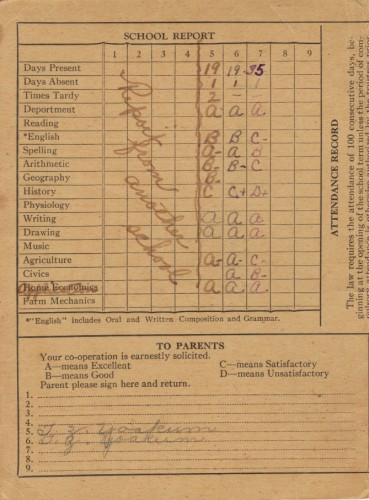 SCHOOL REPORT
1 2 3 4 5 6 7 8 9
Days Present 19 19 35
Days Absent 1 1 1
Times Tardy 2 – –
Deportment a a a
Reading
*English B B C-
Spelling a- a B
Arithmetic B- B- C
Geography B-
History C C+ D+
Physiology
Writing a a a
Drawing a a a
Music
Agriculture a- a- C-
Civics a B-
Home Economics a a a
Farm Mechanics
Report from another school
*"English" includes Oral and Written Composition and Grammar.
TO PARENTS
Your co-operation is earnestly solicited.
A—means Excellent C—means Satisfactory
B—means Good D—means Unsatisfactory
Parent please sign here and return.
1.
2.
3.
4.
5. T. Z. Yoakum
6. T. Z. Yoakum
7.
8.
9.
ATTENDANCE RECORD
The law requires the attendance of 100 consecutive days, be-
ginning at the opening of the school term unless the period of com-